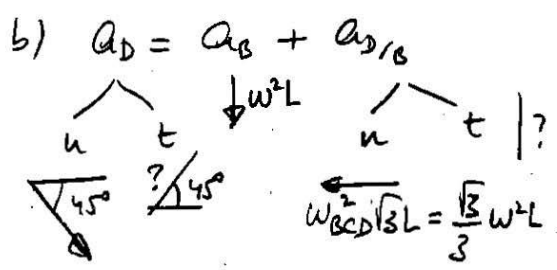 b) a_D = a_B + a_{D/B}
↓ω²L
n t n t |?
45° ? 45°
ω²_{BCD}√3L = √3/3 ω²L